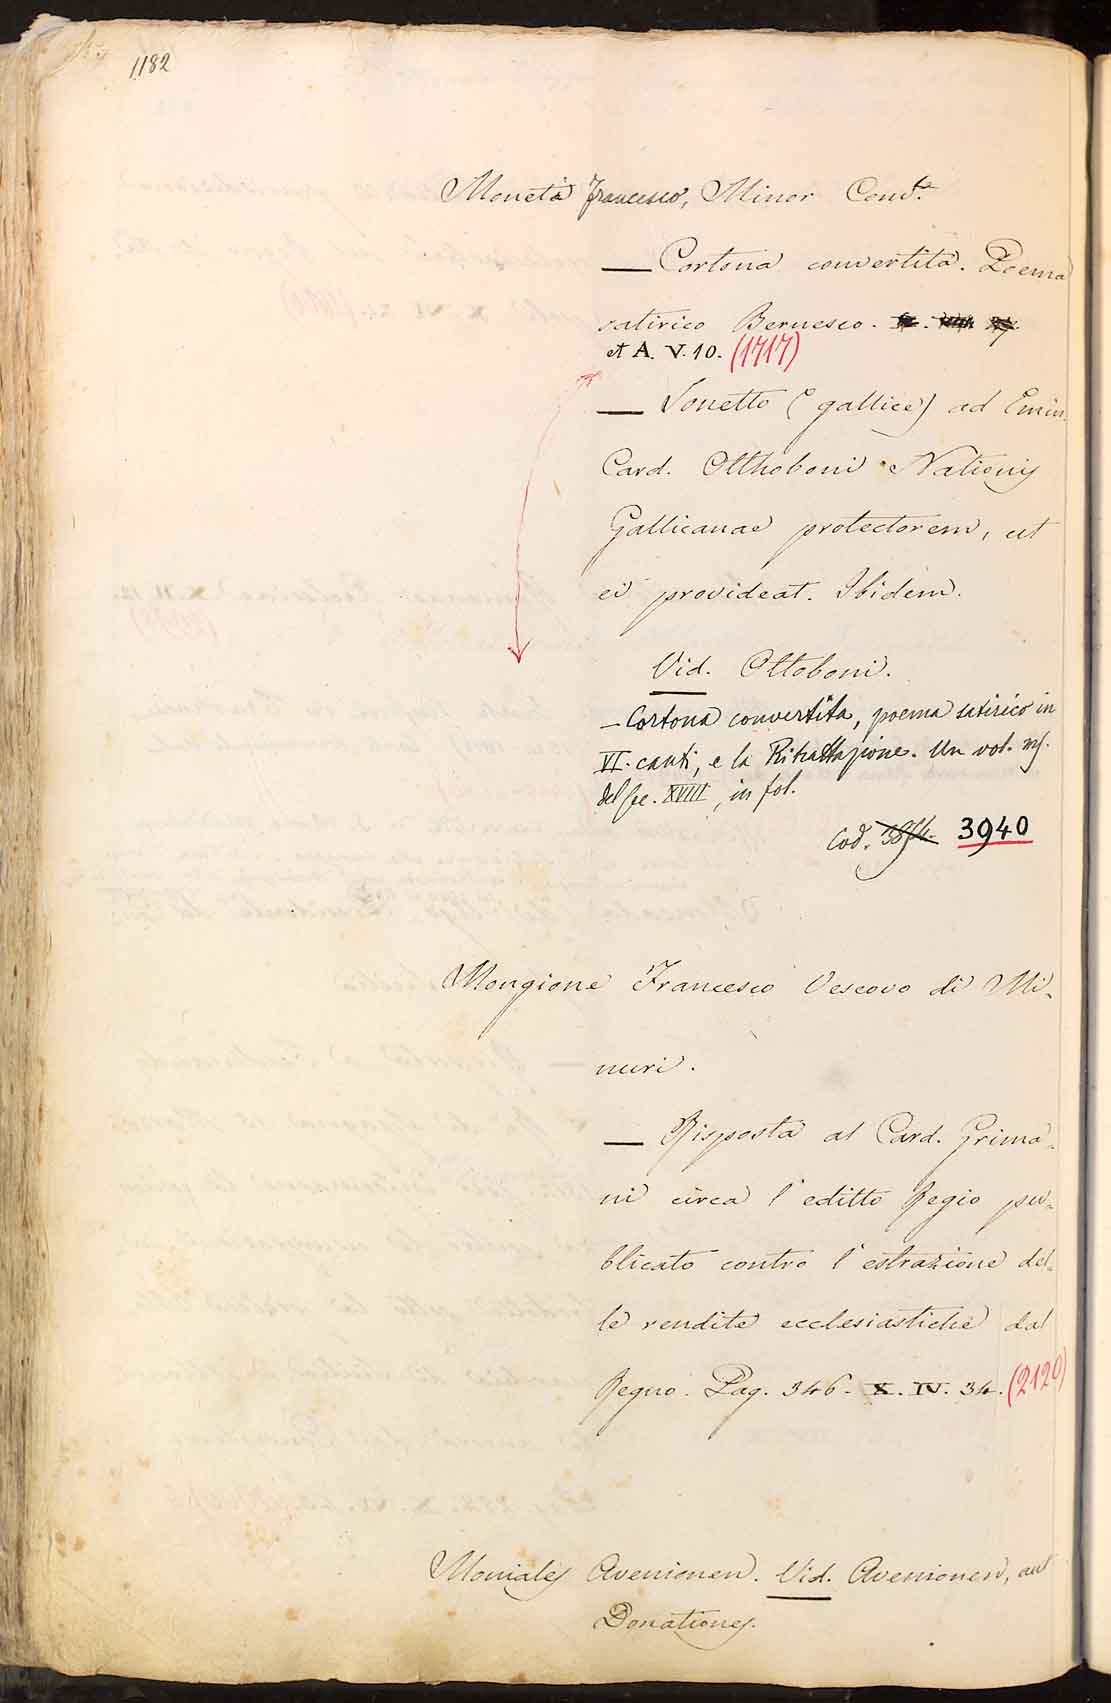 1182
Moneta Francesco, Minor Convle
— Cortona convertita. Poema
satirico Bernesco.
et A. V. 10. (1717)
— Sonetto (gallice) ad Emin.
Card. Otthoboni Nationis
Gallicanae protectorem, ut
ei provideat. Ibidem.
Vid. Ottoboni.
— Cortona convertita, poema satirico in
VI. canti, e la Ritrattazione. Un vol. ms.
del sec. XVIII, in fol.
Cod. 3940
Mongione Francesco Vescovo di Mi-
nuri.
— Risposta al Card. Grima-
ni circa l'editto Regio pu-
blicato contro l'estrazione del-
le rendite ecclesiastiche dal
Regno. Pag. 346. X. IV. 34. (2120)
Moniales Avenionen. Vid. Avenionen, aut
Donationes.